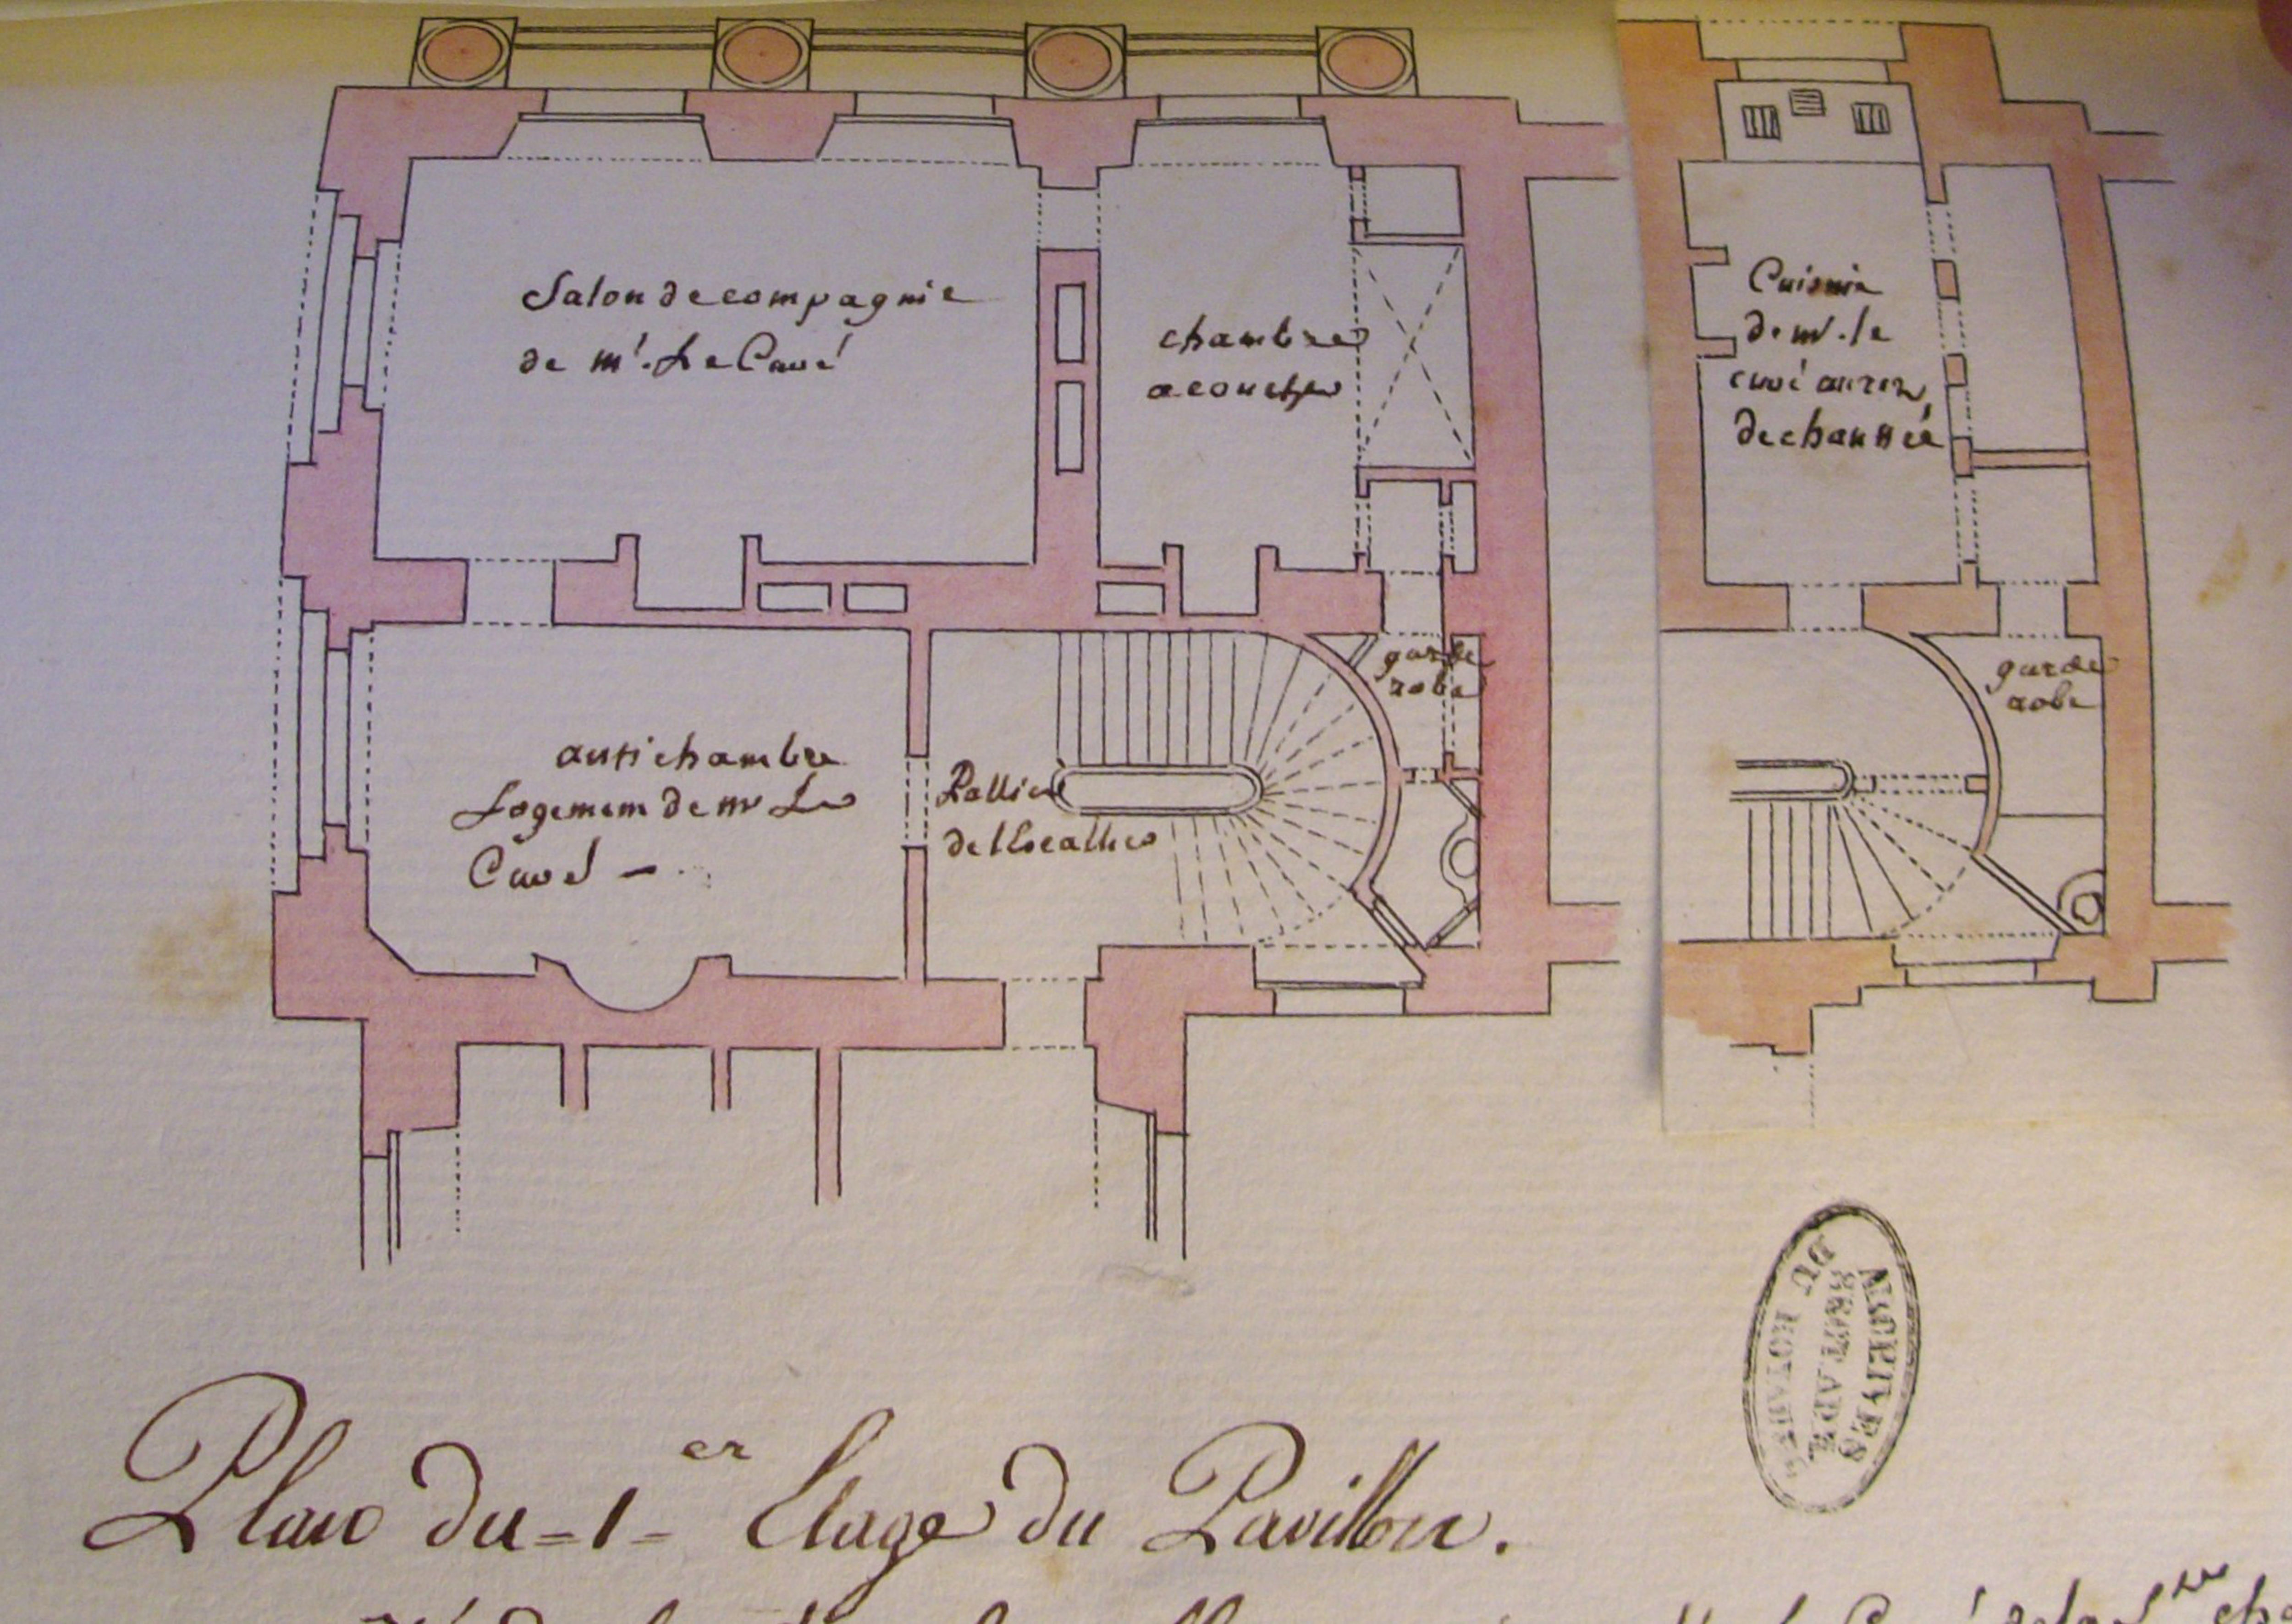 Salon de compagnie
de mr. Le Curé
chambre
a coucher
Cuisine
de mr. le
curé au rez
de chaussée
garde
robe
garde
robe
anti chambre
Logement de mr Le
Curé
Pallier
de l'Escallier
ARCHIVES
DU ROYAUME
Plan du 1er Etage du Pavillon.